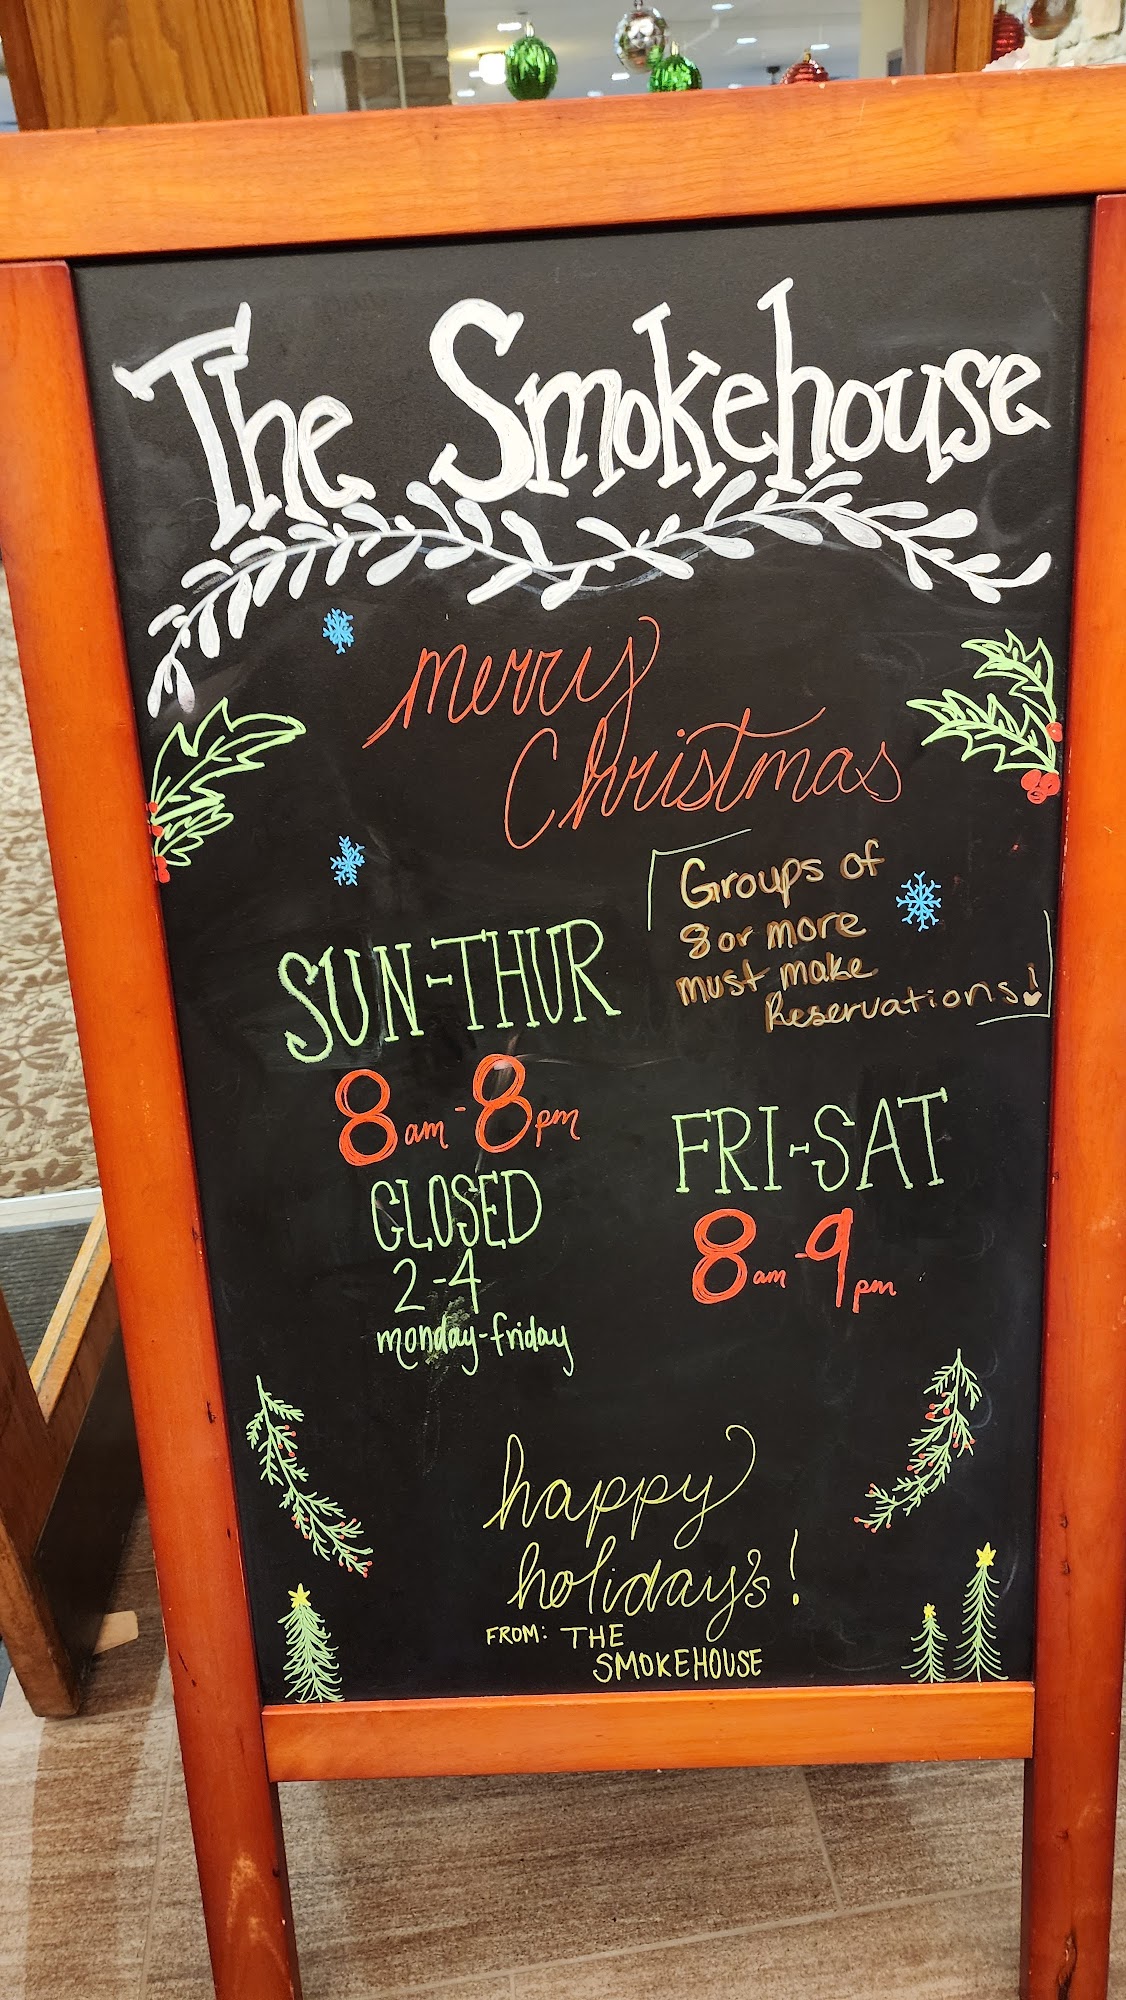 The Smokehouse
merry
Christmas
Groups of
8 or more
must make
Reservations!
SUN-THUR
8am-8pm
CLOSED
2-4
monday-friday
FRI-SAT
8am-9pm
happy
holiday's!
FROM: THE
SMOKEHOUSE